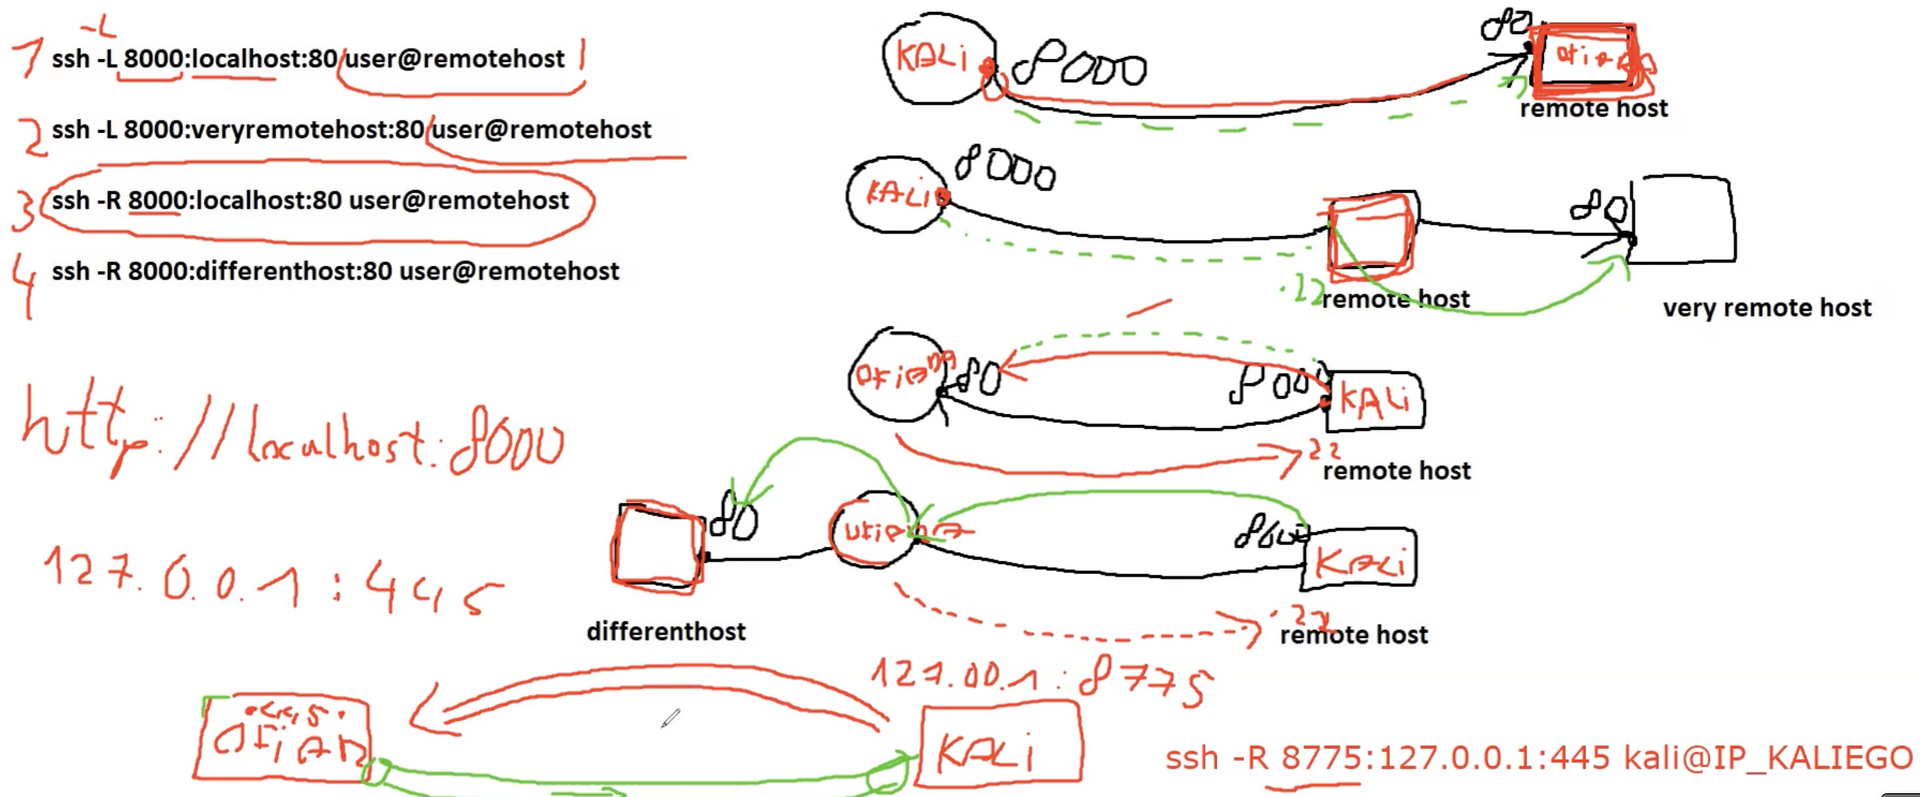 -L
1 ssh -L 8000:localhost:80 user@remotehost
2 ssh -L 8000:veryremotehost:80 user@remotehost
3 ssh -R 8000:localhost:80 user@remotehost
4 ssh -R 8000:differenthost:80 user@remotehost
http://localhost:8000
127.0.0.1:445
KALi 8000 80
remote host
KALi 8000 80
.22 remote host
very remote host
80 8000 KALi
22 remote host
80 KALi
differenthost
22 remote host
127.00.1:8775
KALi
ssh -R 8775:127.0.0.1:445 kali@IP_KALIEGO